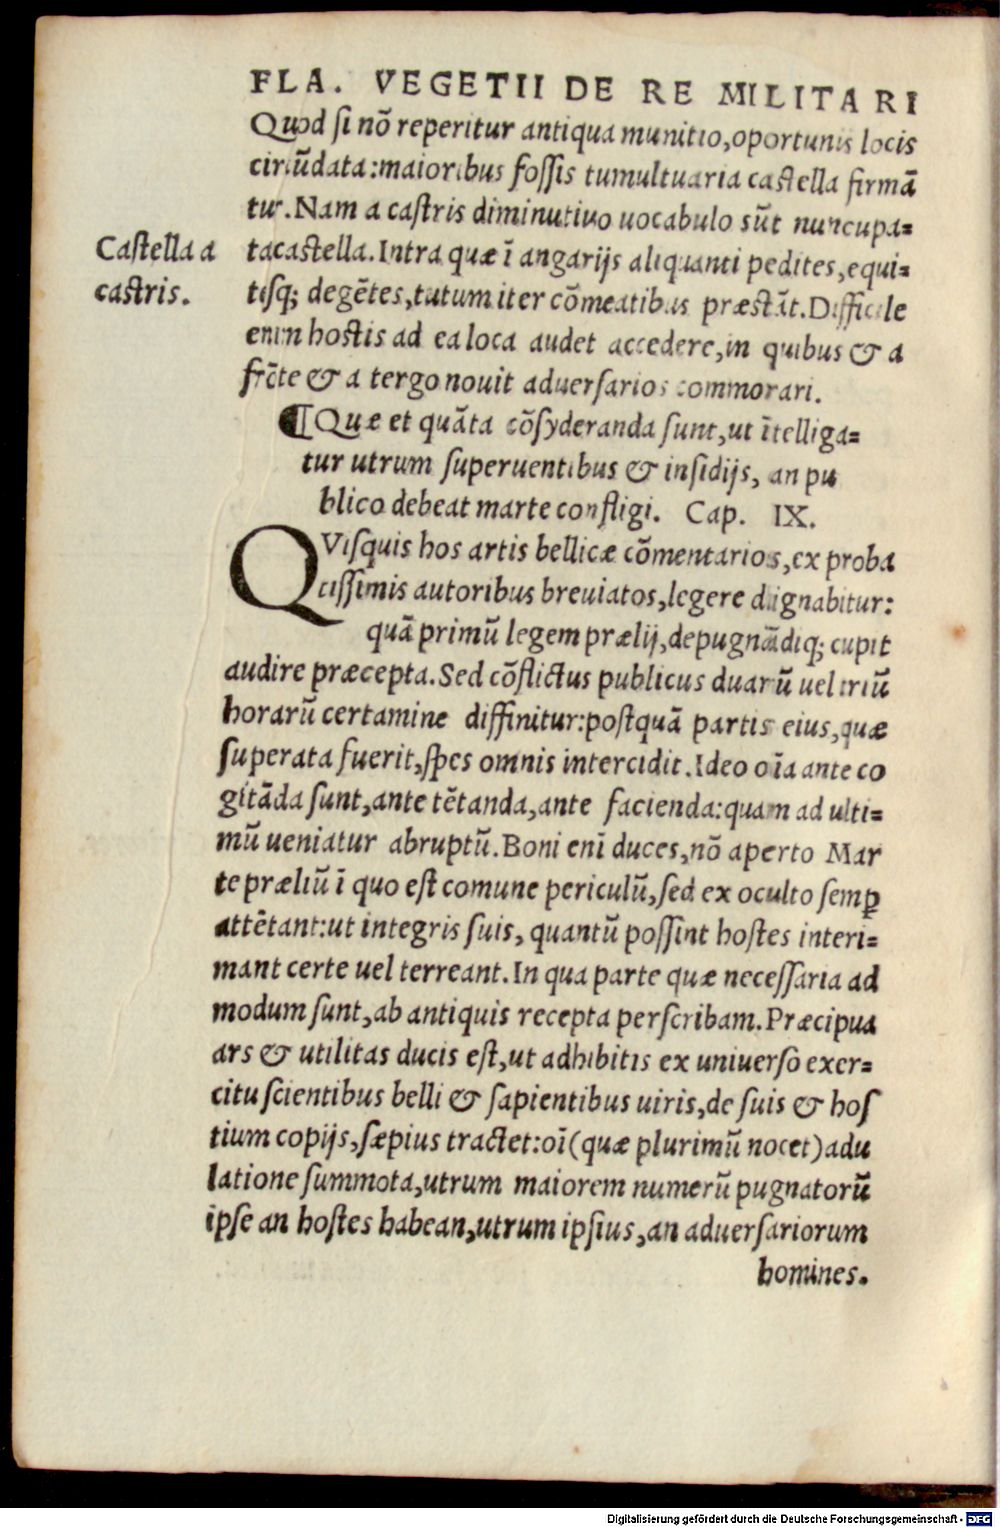 FLA. VEGETII DE RE MILITARI
Quod ſi nõ reperitur antiqua munitio,oportunis locis
circũdata:maioribus foſſis tumultuaria caſtella firmã
tur.Nam a caſtris diminutiuo uocabulo sũt nuncupa=
Caſtella a
caſtris.
tacaſtella.Intra quæ ĩ angarijs aliquanti pedites,equi=
tisq; degẽtes,tutum iter cõmeatibus præſtãt.Difficile
enim hoſtis ad ea loca audet accedere,in quibus & a
frõte & a tergo nouit aduerſarios commorari.
¶Quæ et quãta cõſyderanda ſunt,ut ĩtelliga=
tur utrum ſuperuentibus & inſidijs, an pu
blico debeat marte confligi. Cap. IX.
QViſquis hos artis bellicæ cõmentarios,ex proba
tiſſimis autoribus breuiatos,legere dignabitur:
quã primũ legem prælij,depugnãdiq; cupit
audire præcepta.Sed cõflictus publicus duarũ uel triũ
horarũ certamine diffinitur:poſtquã partis eius,quæ
ſuperata fuerit,ſpes omnis intercidit.Ideo oĩa ante co
gitãda ſunt,ante tẽtanda,ante facienda:quam ad ulti=
mũ ueniatur abruptũ.Boni enĩ duces,nõ aperto Mar
te præliũ ĩ quo eſt comune periculũ,ſed ex oculto ſemꝑ
attẽtant:ut integris ſuis, quantũ poſſint hoſtes interi=
mant certe uel terreant.In qua parte quæ neceſſaria ad
modum ſunt,ab antiquis recepta perſcribam.Præcipua
ars & utilitas ducis eſt,ut adhibitis ex uniuerſo exer=
citu ſcientibus belli & ſapientibus uiris,de ſuis & hoſ
tium copijs,ſæpius tractet:oĩ(quæ plurimũ nocet)adu
latione ſummota,utrum maiorem numerũ pugnatorũ
ipſe an hoſtes habean,utrum ipſius,an aduerſariorum
homines.
Digitalisierung gefördert durch die Deutsche Forschungsgemeinschaft - DFG